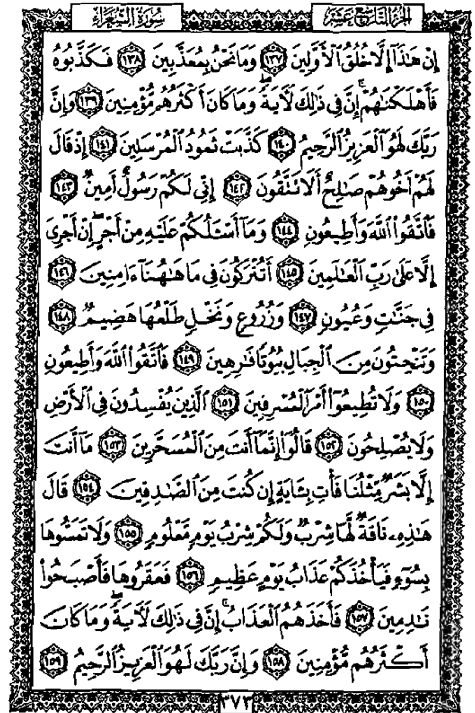 سُورَةُ الشُّعَرَاءِ الجُزْءُ التَّاسِعُ عَشَرَ
إِنْ هَٰذَا إِلَّا خُلُقُ ٱلْأَوَّلِينَ ١٣٧ وَمَا نَحْنُ بِمُعَذَّبِينَ ١٣٨ فَكَذَّبُوهُ
فَأَهْلَكْنَٰهُمْ ۗ إِنَّ فِي ذَٰلِكَ لَءَايَةً ۖ وَمَا كَانَ أَكْثَرُهُم مُّؤْمِنِينَ ١٣٩ وَإِنَّ
رَبَّكَ لَهُوَ ٱلْعَزِيزُ ٱلرَّحِيمُ ١٤٠ كَذَّبَتْ ثَمُودُ ٱلْمُرْسَلِينَ ١٤١ إِذْ قَالَ
لَهُمْ أَخُوهُمْ صَٰلِحٌ أَلَا تَتَّقُونَ ١٤٢ إِنِّي لَكُمْ رَسُولٌ أَمِينٌ ١٤٣
فَٱتَّقُوا۟ ٱللَّهَ وَأَطِيعُونِ ١٤٤ وَمَا أَسْـَٔلُكُمْ عَلَيْهِ مِنْ أَجْرٍ ۖ إِنْ أَجْرِيَ
إِلَّا عَلَىٰ رَبِّ ٱلْعَٰلَمِينَ ١٤٥ أَتُتْرَكُونَ فِي مَا هَٰهُنَا ءَامِنِينَ ١٤٦
فِي جَنَّٰتٍ وَعُيُونٍ ١٤٧ وَزُرُوعٍ وَنَخْلٍ طَلْعُهَا هَضِيمٌ ١٤٨
وَتَنْحِتُونَ مِنَ ٱلْجِبَالِ بُيُوتًا فَٰرِهِينَ ١٤٩ فَٱتَّقُوا۟ ٱللَّهَ وَأَطِيعُونِ
١٥٠ وَلَا تُطِيعُوٓا۟ أَمْرَ ٱلْمُسْرِفِينَ ١٥١ ٱلَّذِينَ يُفْسِدُونَ فِي ٱلْأَرْضِ
وَلَا يُصْلِحُونَ ١٥٢ قَالُوٓا۟ إِنَّمَا أَنتَ مِنَ ٱلْمُسَحَّرِينَ ١٥٣ مَا أَنتَ
إِلَّا بَشَرٌ مِّثْلُنَا فَأْتِ بِـَٔايَةٍ إِن كُنتَ مِنَ ٱلصَّٰدِقِينَ ١٥٤ قَالَ
هَٰذِهِۦ نَاقَةٌ لَّهَا شِرْبٌ وَلَكُمْ شِرْبُ يَوْمٍ مَّعْلُومٍ ١٥٥ وَلَا تَمَسُّوهَا
بِسُوٓءٍ فَيَأْخُذَكُمْ عَذَابُ يَوْمٍ عَظِيمٍ ١٥٦ فَعَقَرُوهَا فَأَصْبَحُوا۟
نَٰدِمِينَ ١٥٧ فَأَخَذَهُمُ ٱلْعَذَابُ ۗ إِنَّ فِي ذَٰلِكَ لَءَايَةً ۖ وَمَا كَانَ
أَكْثَرُهُم مُّؤْمِنِينَ ١٥٨ وَإِنَّ رَبَّكَ لَهُوَ ٱلْعَزِيزُ ٱلرَّحِيمُ ١٥٩
٣٧٣